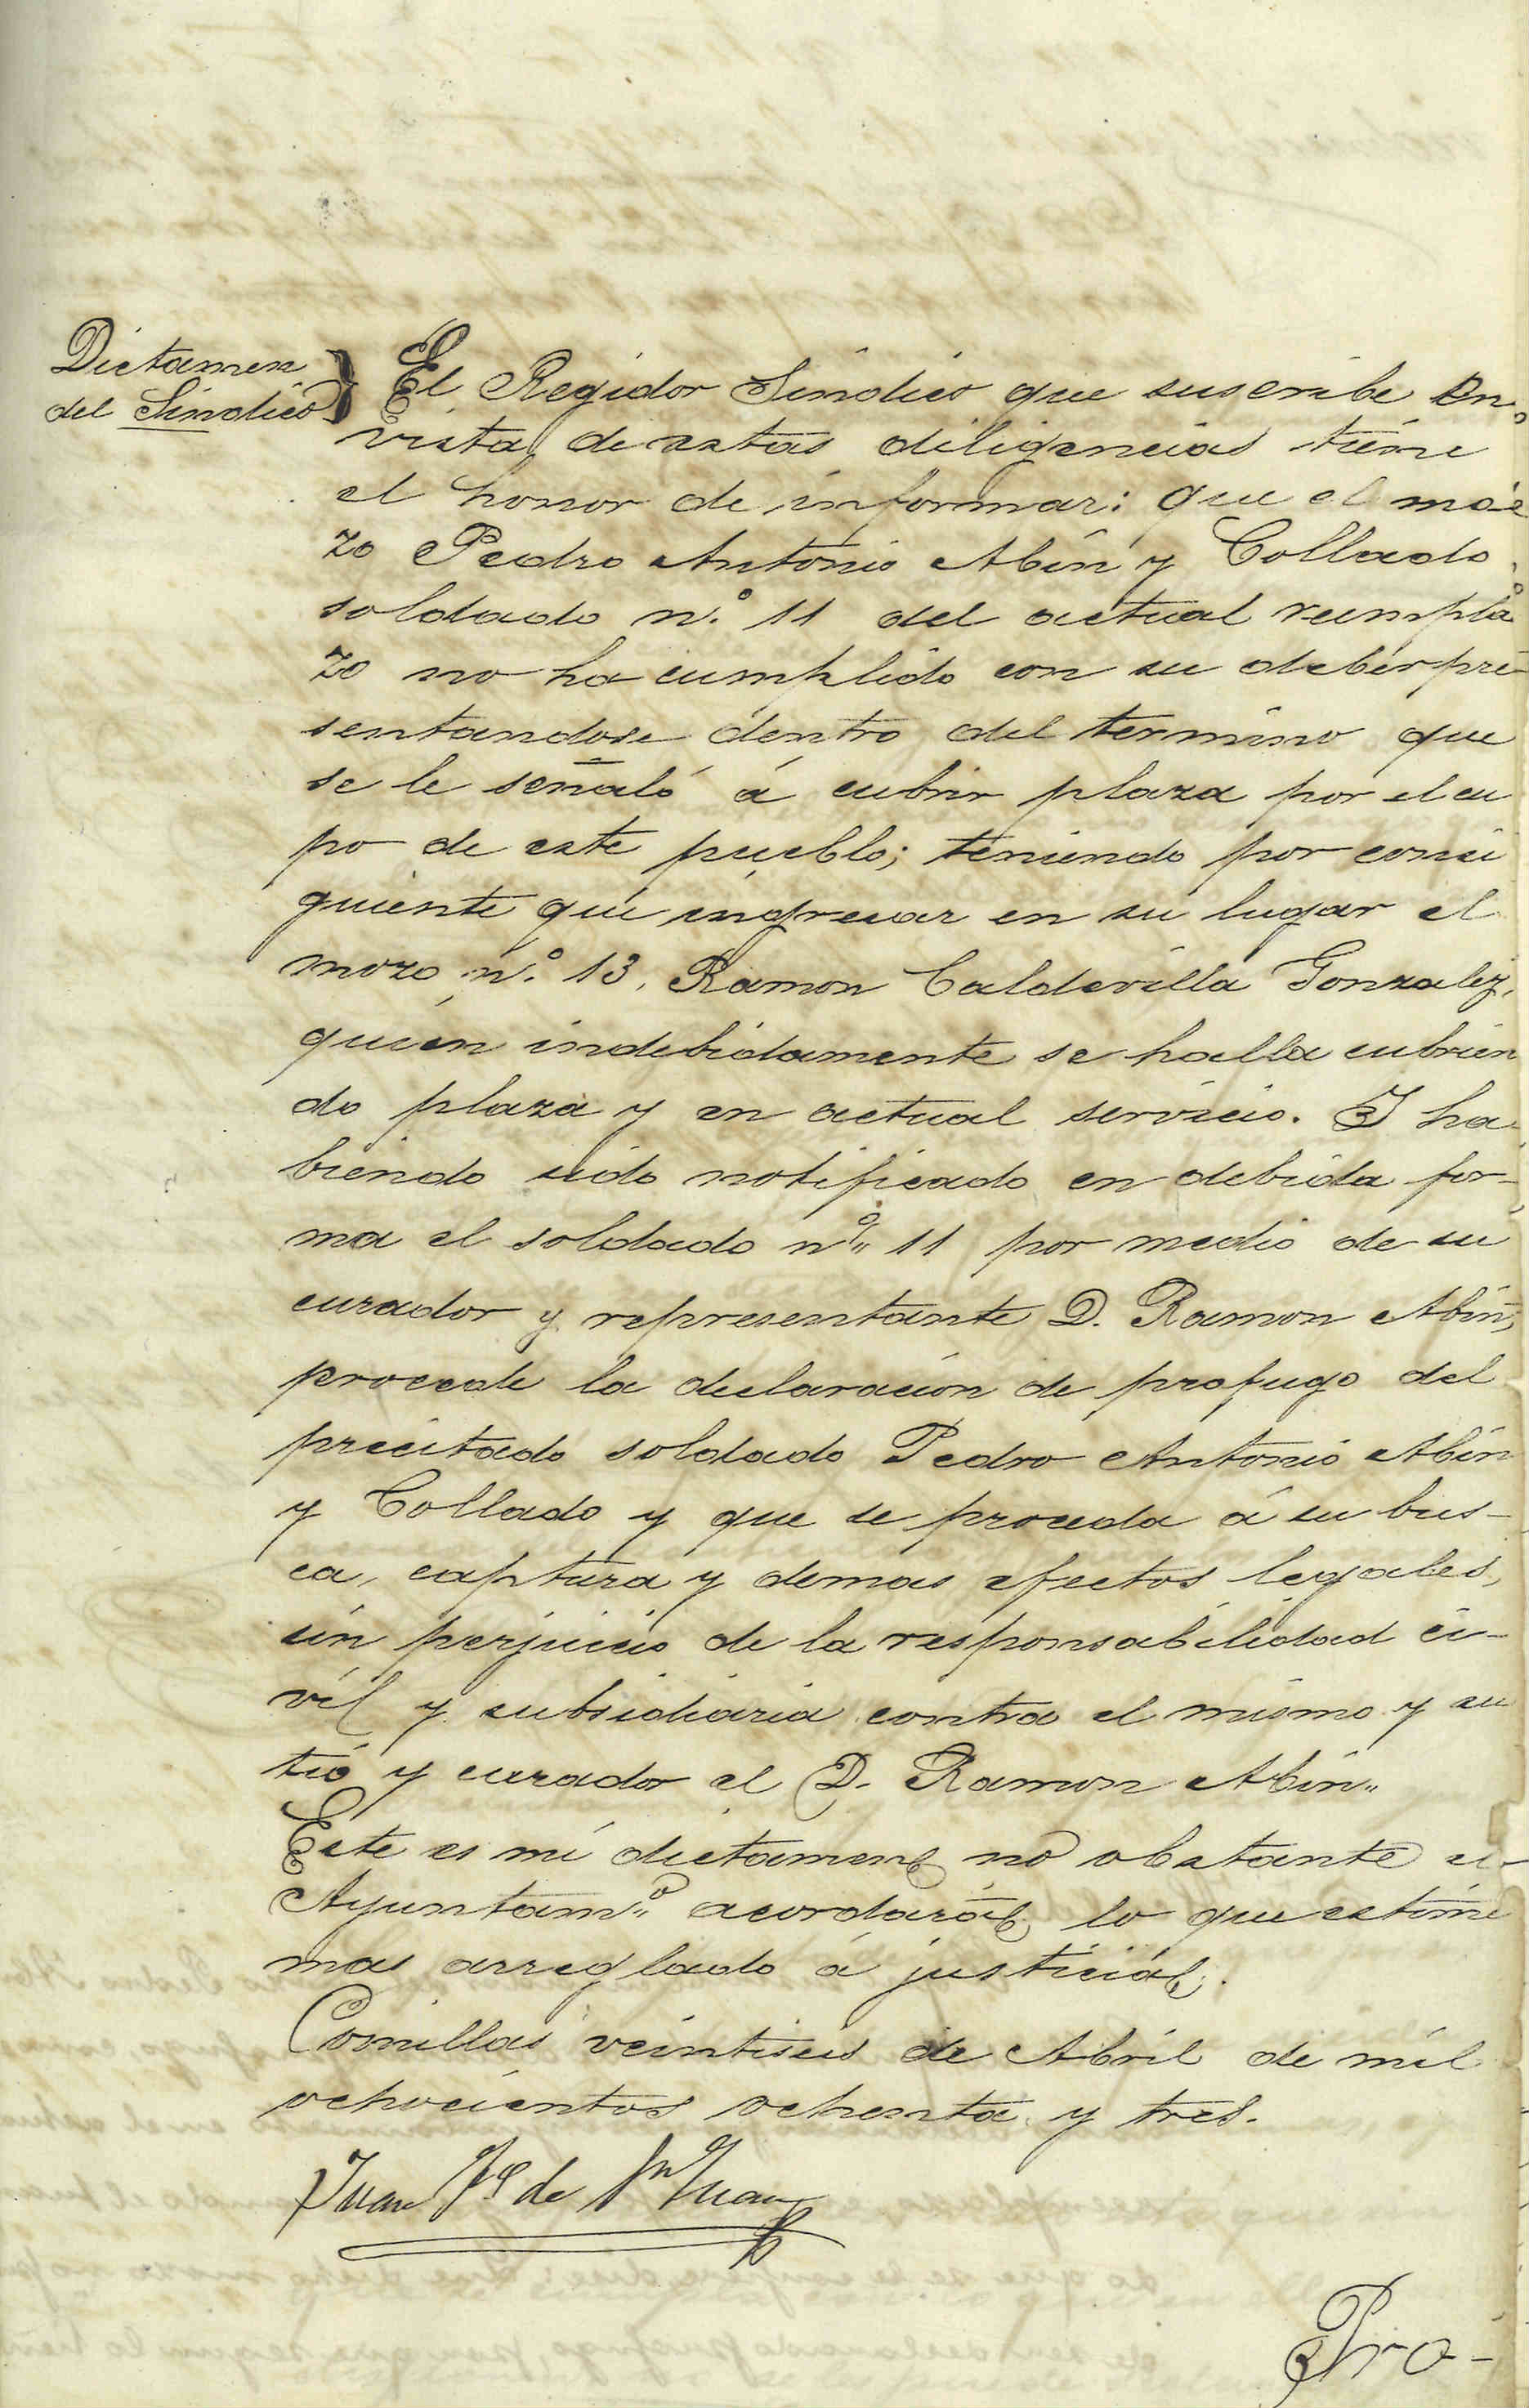 Dictamen
del Sindico
El Regidor Sindico que suscribe en
vista de estas diligencias tiene
el honor de informar: que el mo-
zo Pedro Antonio Abin y Collado
soldado n.º 11 del actual reempla
zo no ha cumplido con su deber pre-
sentandose dentro del termino que
se le señaló á cubrir plaza por el cu
po de este pueblo; teniendo por consi
guiente que ingresar en su lugar el
mozo n.º 13, Ramon Caldevilla Gonzalez,
quien indebidamente se halla cubrien
do plaza y en actual servicio. Y ha-
biendo sido notificado en debida for-
ma el soldado nº 11 por medio de su
curador y representante D. Ramon Abin,
procede la declaracion de profugo del
precitado soldado Pedro Antonio Abin
y Collado y que se proceda á su bus-
ca, captura y demas efectos legales,
sin perjuicio de la responsabilidad ci-
vil y subsidiaria contra el mismo y su
tio y curador el D. Ramon Abin.
Este es mi dictamen no obstante el
Ayuntamº acordará lo que estime
mas arreglado á justicia.
Comillas veintiseis de Abril de mil
ochocientos ochenta y tres.
Juan de Sn Juan
Pro-